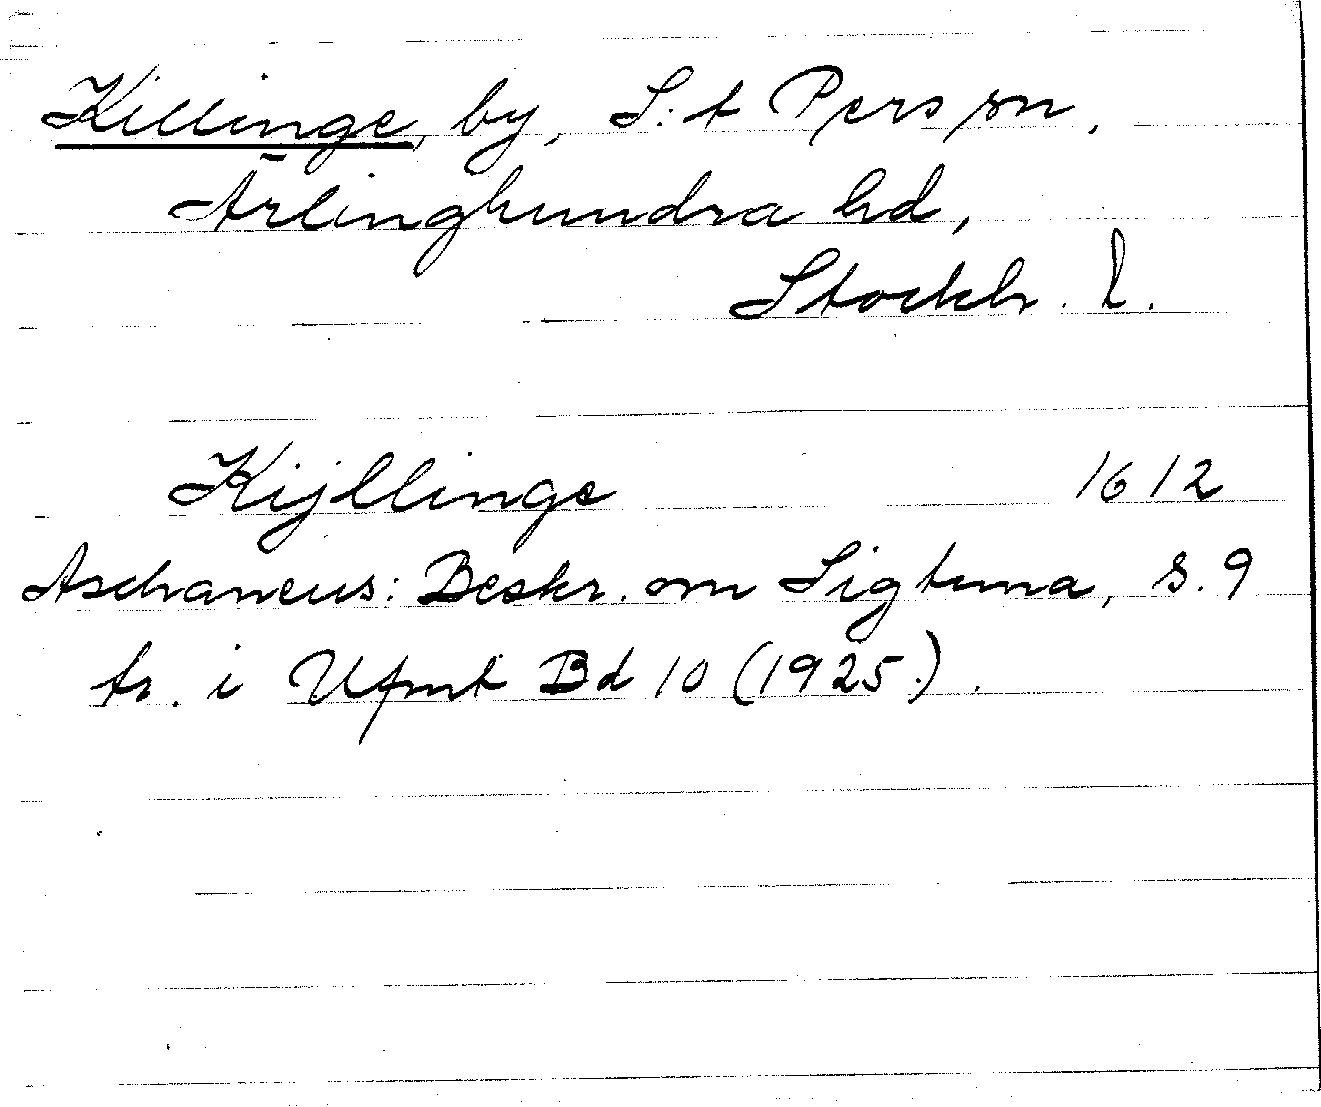 Killinge, by, S:t Pers sn,
Ärlinghundra hd,
Stockh. l.
Kijllinge 1612
Aschaneus: Beskr. om Sigtuna, s. 9
tr. i Ufmt Bd 10 (1925).